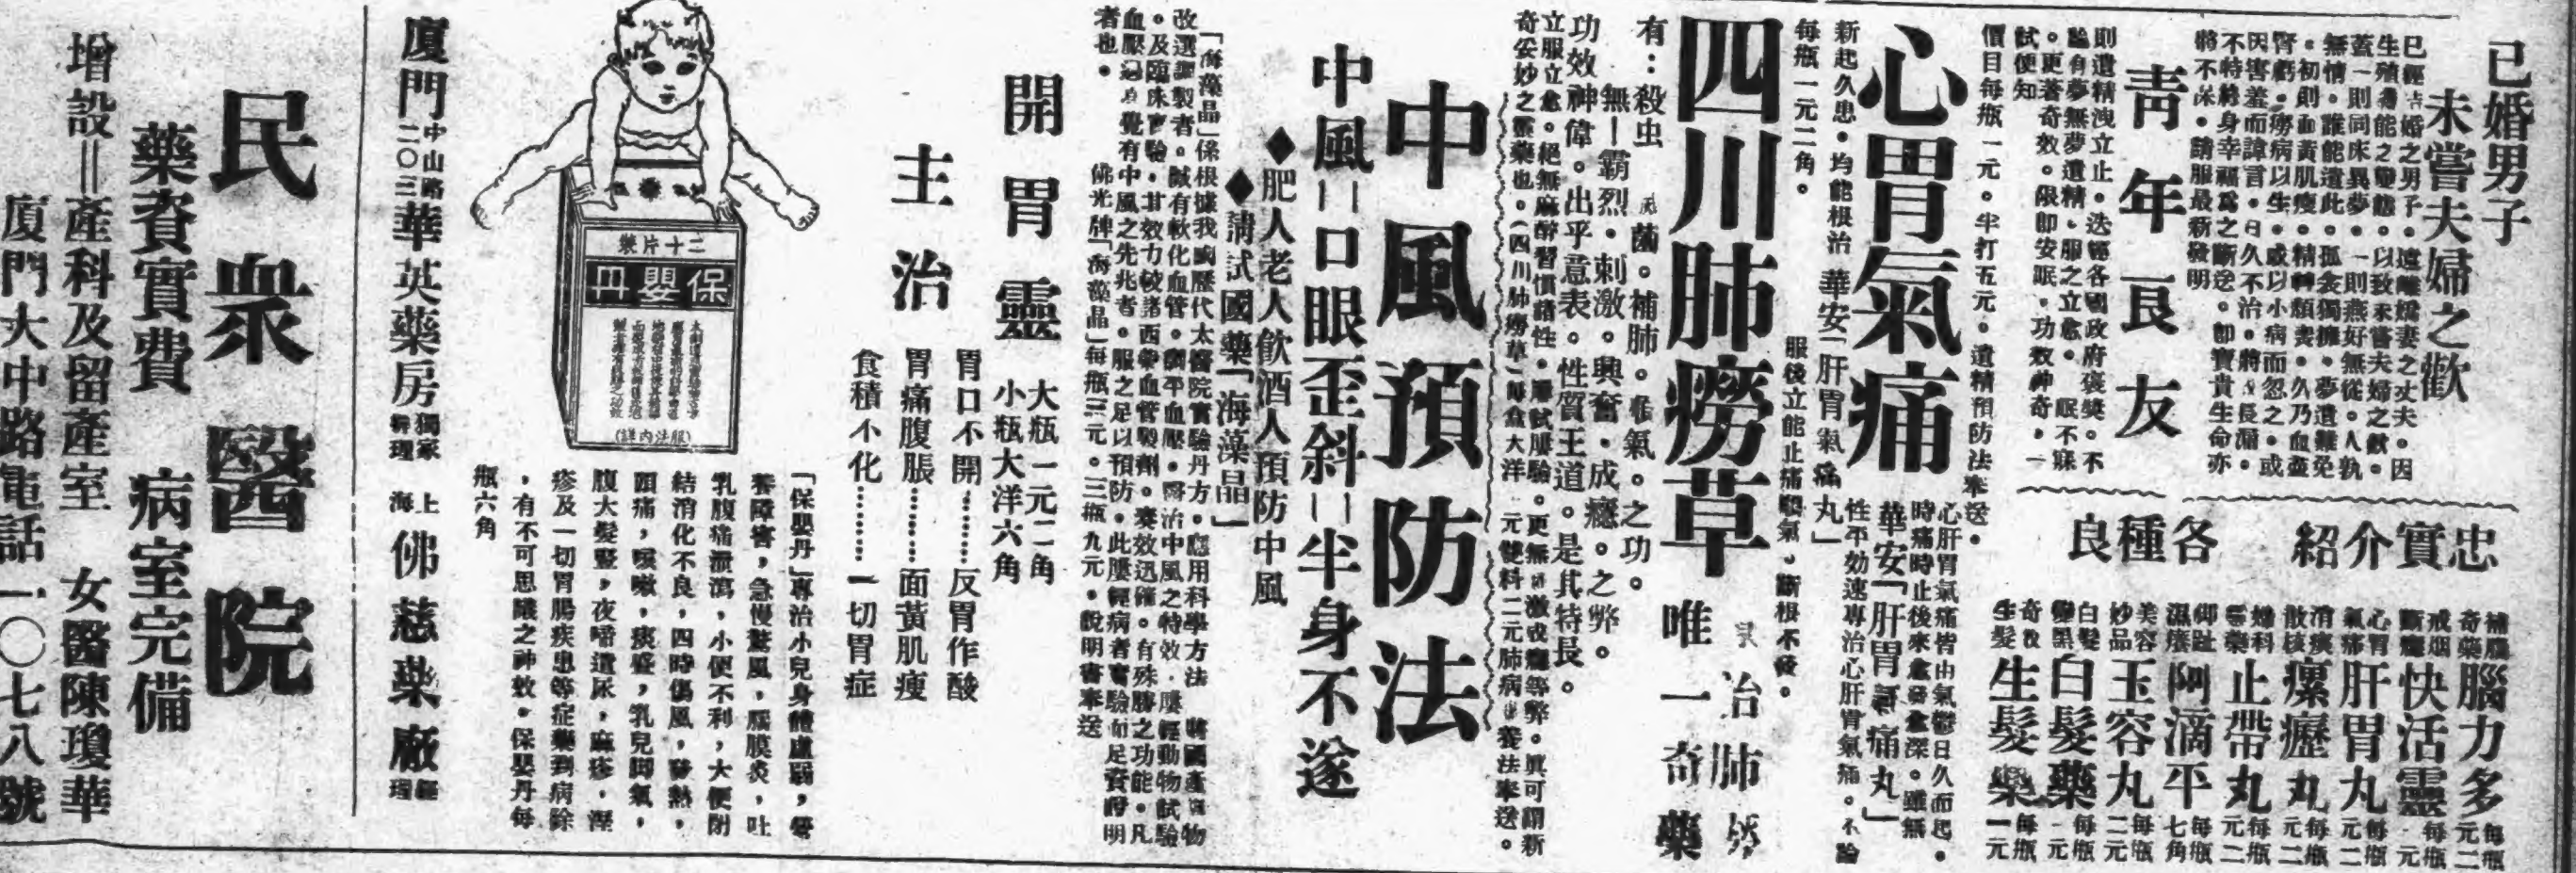 已婚男子
未嘗夫婦之歡
已經結婚之男子。遠離嬌妻之丈夫。因
生殖機能之變態。以致未嘗夫婦之歡。
蓋一則同床異夢。一則燕好無從。人孰
無情。誰能遣此。孤衾獨擁。夢遺難免
。初則血黃肌瘦。精神頹喪。久乃血虛
腎虧。癆病以生。或以小病而忽之。或
因害羞而諱言。日久不治。將成長漏。
不特終身幸福爲之斷送。卽寶貴生命亦
將不保。請服最新發明
青年良友
則遺精洩立止。迭經各國政府褒獎。不
論有夢無夢遺精。服之立愈。眠不寐
。更著奇效。限卽安眠。功效神奇。一
試便知
價目每瓶一元。半打五元。遺精預防法奉送。
忠實介紹
各種良
補腦奇藥 腦力多 每瓶二元
戒烟斷癮 快活靈 每瓶一元
心胃氣痛 肝胃丸 每瓶二元
消痰散核 瘰癧丸 每瓶二元
婦科聖藥 止帶丸 每瓶二元
脚趾濕癢 阿滴平 每瓶七角
美容妙品 玉容丸 每瓶二元
白髮變黑 白髮藥 每瓶二元
奇效生髮 生髮藥 每瓶一元
心胃氣痛
心肝胃氣痛皆由氣鬱日久而起。
時痛時止後來愈發愈深。雖無
華安「肝胃氣痛丸」
性平効速專治心肝胃氣痛。不論
新起久患。均能根治 華安「肝胃氣痛丸」
服後立能止痛順氣。斷根不發。
每瓶一元二角。
四川肺癆草
治肺癆
唯一奇藥
有:殺虫 滅菌。補肺。順氣。之功。
無—霸烈。刺激。興奮。成癮。之弊。
功效神偉。出乎意表。性質王道。是其特長。
立服立愈。絕無麻醉習慣諸性。屢試屢驗。更無刺激成癮等弊。眞可謂新
奇妥妙之靈藥也。(四川肺癆草)每盒大洋一元雙料二元肺病療養法奉送。
中風預防法
中風—口眼歪斜—半身不遂
◆肥人老人飲酒人預防中風
◆請試國藥「海藻晶」
「海藻晶」係根據我國歷代太醫院實驗丹方。應用科學方法 將國產藥物
改選調製者。誠有軟化血管。調平血壓。醫治中風之特效。屢經動物試驗
。及臨床實驗。其效力較諸西藥血管製劑。奏效迅確。有殊勝之功能。凡
血壓過高覺有中風之先兆者。服之足以預防。此屢經病者實驗而足資證明
者也。 佛光牌「海藻晶」每瓶三元。三瓶九元。說明書奉送
開胃靈
大瓶一元二角
小瓶大洋六角
主治
胃口不開………反胃作酸
胃痛腹脹………面黃肌瘦
食積不化………一切胃症
二十片裝
保嬰丹
(服法內詳)
「保嬰丹」專治小兒身體虛弱,營
養障害,急慢驚風,腦膜炎,吐
乳腹痛泄瀉,小便不利,大便閉
結消化不良,四時傷風,發熱,
頭痛,咳嗽,痰壅,乳兒脚氣,
腹大髮豎,夜啼遺尿,麻疹,溼
疹及一切胃腸疾患等症藥到病除
,有不可思議之神效。保嬰丹每
瓶六角
廈門中山路二〇三華英藥房獨家辦理
上海佛慈藥廠經理
民衆醫院
藥資實費 病室完備
增設=產科及留產室 女醫陳瓊華
廈門大中路電話一〇七八號